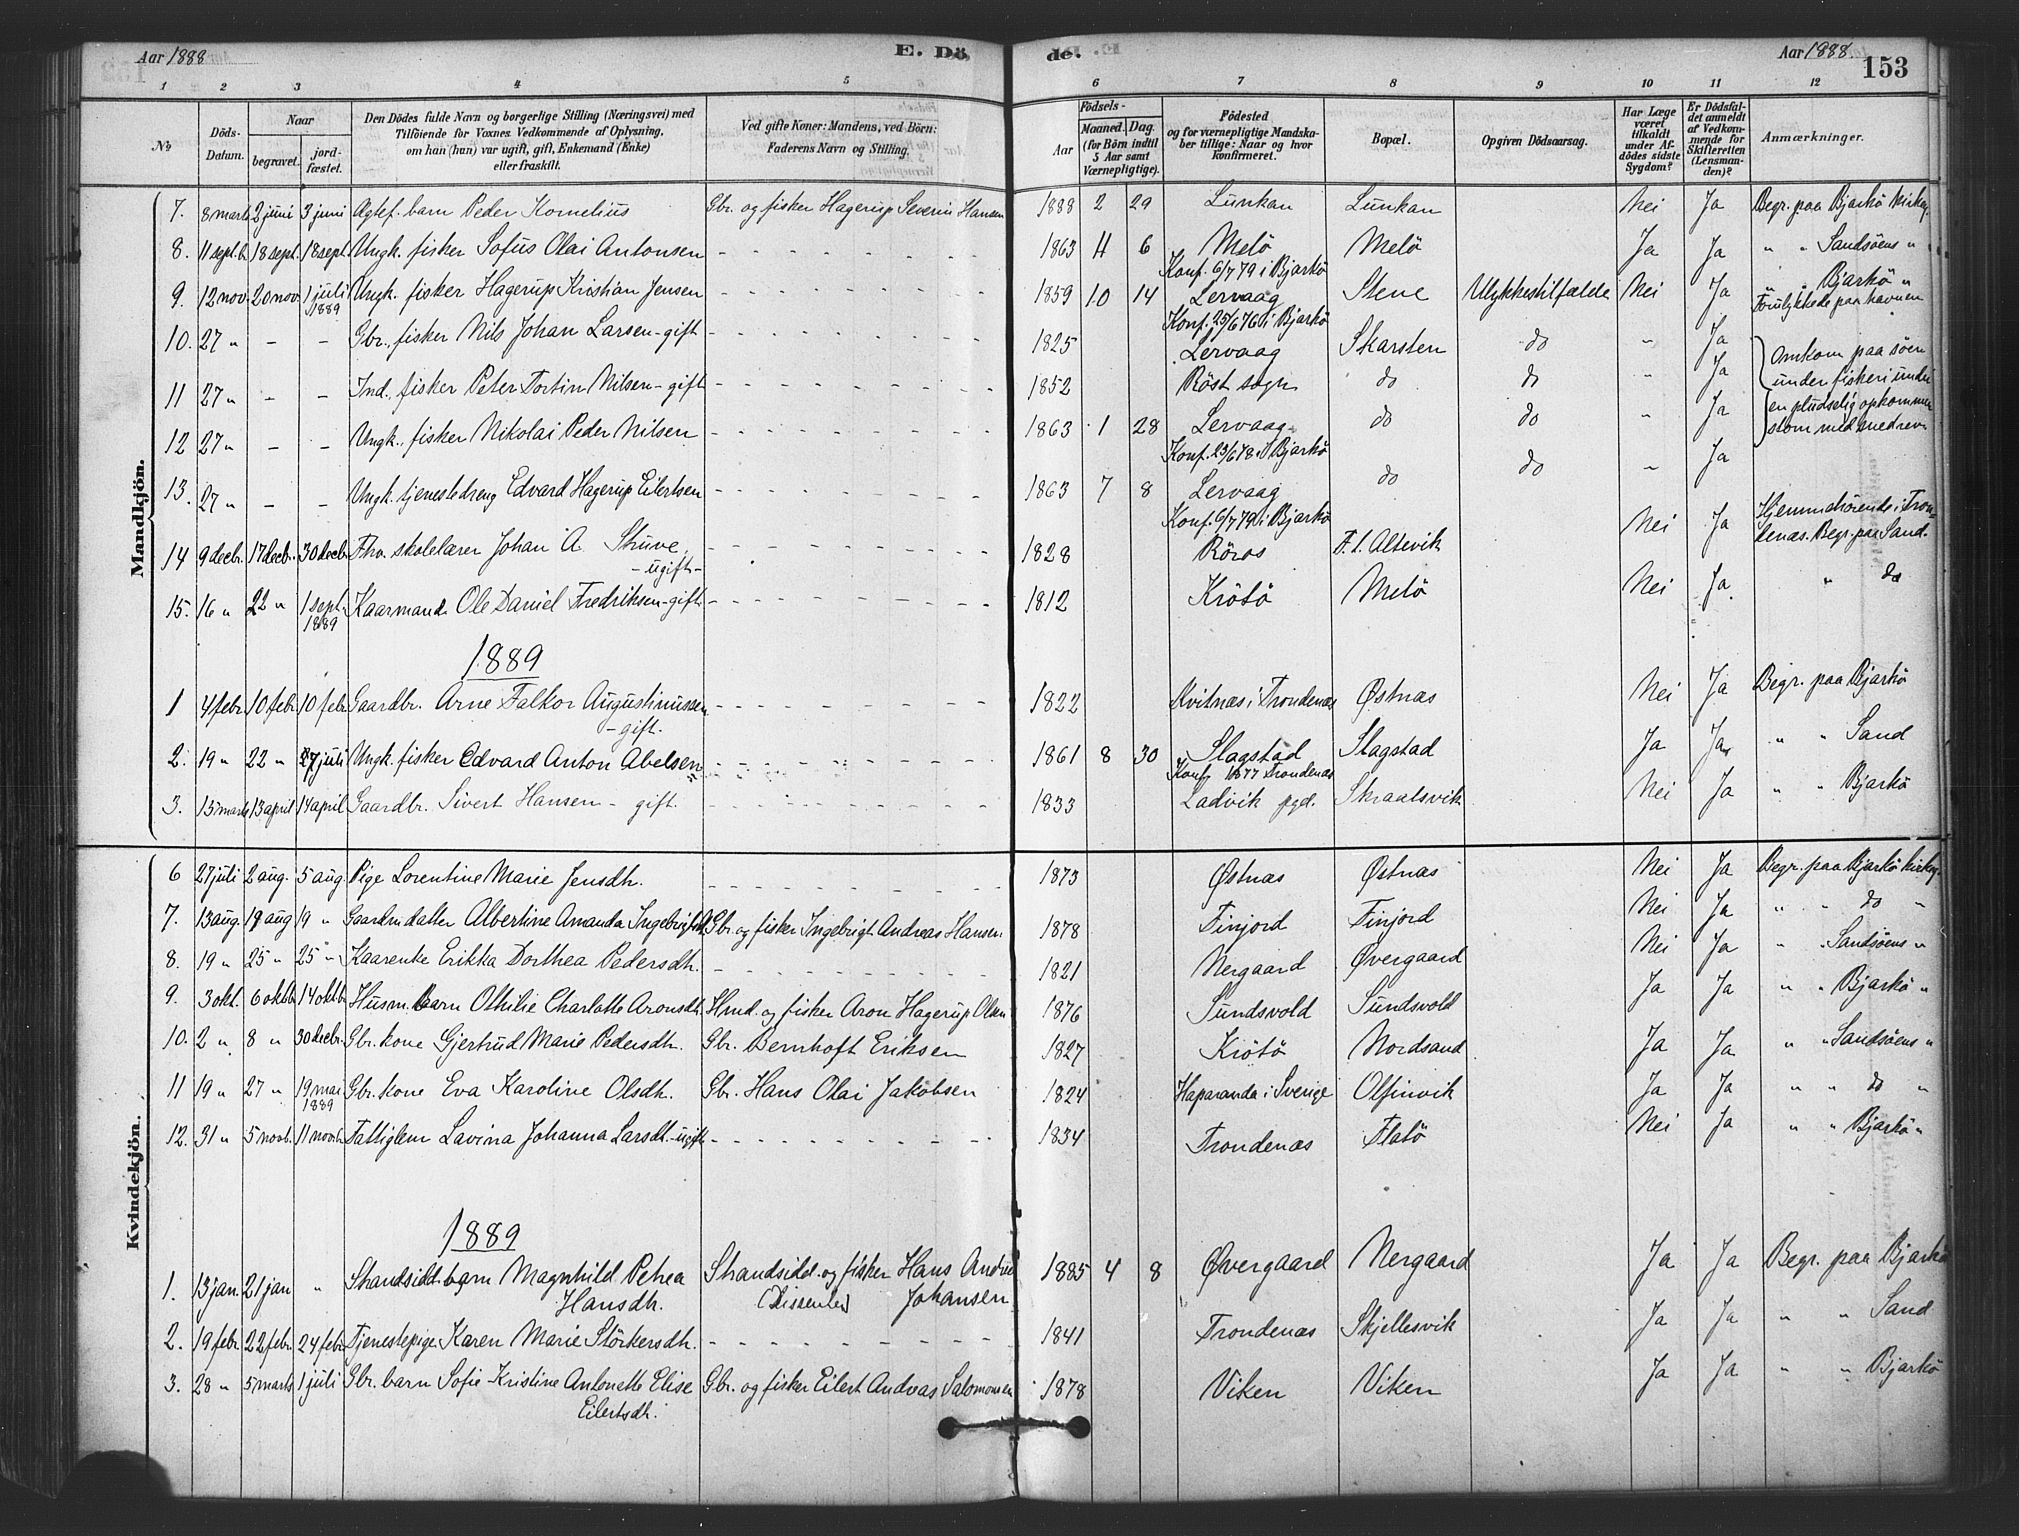 Aar 1888 E. Dö de. Aar 1888. 153
1 2 3 4 5 6 7 8 9 10 11 12
No
Döds-Datum.
Naar
begravet.
jord-fæstet.
Den Dödes fulde Navn og borgerlige Stilling (Næringsvei) med
Tilföiende for Voxnes Vedkommende af Oplysning,
om han (hun) var ugift, gift, Enkemand (Enke)
eller fraskilt.
Ved gifte Koner: Mandens, ved Börn:
Faderens Navn og Stilling.
Födsels-
Aar
Maaned. Dag.
(for Börn indtil
5 Aar samt
Værnepligtige).
Födested
og for værnepligtige Mandska-
ber tillige: Naar og hvor
konfirmeret.
Bopæl.
Opgiven Dödsaarsag.
Har Læge
været
tilkaldt
under Af-
dödes sidste
Sygdom?
Er Dödsfal-
det anmeldt
af Vedkom-
mende for
Skifteretten
(Lensman-
den)?
Anmærkninger.
Mandkjön.
7. 8 marts 2 juni 3 juni Ægtef. barn Peder Kornelius Gbr. og fisker Hagerup Severin Hansen 1888 2 29 Lunkan Lunkan Nei Ja Begr. paa Bjarkö kirkeg.
8. 11 septb. 18 sept. 18 sept. Ungk. fisker Sofus Olai Antonsen 1863 4 6 Melö Melö Ja Ja " " Sandsöens "
Konf. 6/7 79 i Bjarkö
9. 12 nov. 20 nov. 1 juli 1889 Ungk. fisker Hagerup Kristian Jensen 1859 10 14 Lervaag Stene Ulykkestilfælde Nei Ja " " Bjarkö "
Konf. 25/6 76 i Bjarkö Forulykkede paa havnen
10. 27 " - - Gbr., fisker Nils Johan Larsen - gift 1825 Lervaag Skarsten do " Ja Omkom paa söen
11 27 " - - Ind., fisker Peter Tortin Nilsen - gift 1852 Röst sogn do do " Ja under fiskeri under
12 27 " - - Ungk., fisker Nikolai Peder Nilsen 1863 1 28 Lervaag do do " Ja en pludselig opkommen
Konf. 23/6 78 i Bjarkö storm med snedrev.
13. 27 " - - Ungk. tjenestedreng Edvard Hagerup Eilertsen 1863 7 8 Lervaag do do " Ja
Konf. 6/7 79 i Bjarkö
14 9 decbr. 17 decbr. 30 decbr. Fhv. skolelærer Johan A. Struve, 1828 Röros F. t. Altevik Nei Ja Hjemmehörende i Tron-
- ugift - denæs. Begr. paa Sand.
15. 16 " 22 " 1 sept. 1889 Kaarmand Ole Daniel Fredriksen - gift 1812 Krötö Melö Nei Ja. " do
1889
1 4 febr. 10 febr. 10 febr. Gaardbr. Arne Falkor Augustinussen 1822 Kvitnæs i Trondenæs Østnæs Nei Ja Begr. paa Bjarkö
- gift.
2. 19 " 22 " 27 juli Ungk. fisker Edvard Anton Abelsen 1861 8 30 Slagstad Slagstad Ja Ja " " Sand
Konf. 1877 Trondenæs
3. 15 marts 13 april 14 april Gaardbr. Sivert Hansen - gift. 1833 Ladvik pgd. Skraalsvik Nei Ja " " Bjarkö
Kvindekjön.
6 27 juli 2 aug. 5 aug. Pige Lorentine Marie Jensdtr. 1873 Østnæs Østnæs Nei Ja Begr. paa Bjarkö kirkeg.
7. 13 aug. 19 aug 19 " Gaardm. datter Albertine Amanda Ingebrigtsd. Gbr. og fisker Ingebrigt Andreas Hansen 1878 Finjord Finjord Nei Ja " " do "
8. 19 " 25 " 25 " Kaarenke Erikka Dorthea Pedersdtr. 1821 Nergaard Øvergaard Nei Ja " " Sandsöens "
9. 3 okt. 6 oktb. 14 oktb. Husm. barn Othilie Charlotte Aronsdtr. Hmd. og fisker Aron Hagerup Olsen 1876 Sundsvold Sundsvold Ja Ja " " Bjarkö "
10. 2 " 8 " 30 decbr. Gbr. kone Gjertrud Marie Pedersdtr. Gbr. Bernhoft Eriksen 1827 Krötö Nordsand Ja Ja " " Sandsöens "
11 19 " 27 " 19 mai 1889 Gbr. kone Eva Karoline Olsdtr. Gbr. Hans Olai Jakobsen 1824 Haparanda i Sverige Olfinvik Ja Ja " " do "
12. 31 " 5 novb. 11 novb. Fattiglem Lavina Johanna Larsdtr. - ugift 1834 Trondenæs Flatö Nei Ja " " Bjarkö "
1889
1. 13 jan. 21 jan " Strandsidd. barn Magnhild Petrea Strandsidd. og fisker Hans Andreas 1885 4 8 Øvergaard Nergaard Ja Ja Begr. paa Bjarkö
Hansdtr. (Dissenter) Johansen
2. 19 febr. 22 febr. 24 febr. Tjenestepige Karen Marie Störkersdtr. 1841 Trondenæs Skjellesvik Ja Ja " " Sand
3. 28 " 5 marts 1 juli Gbr. barn Sofie Kristine Antonette Elise Gbr. og fisker Eilert Andreas Salomonsen 1878 Viken Viken Ja Ja " " Bjarkö
Eilertsdtr.